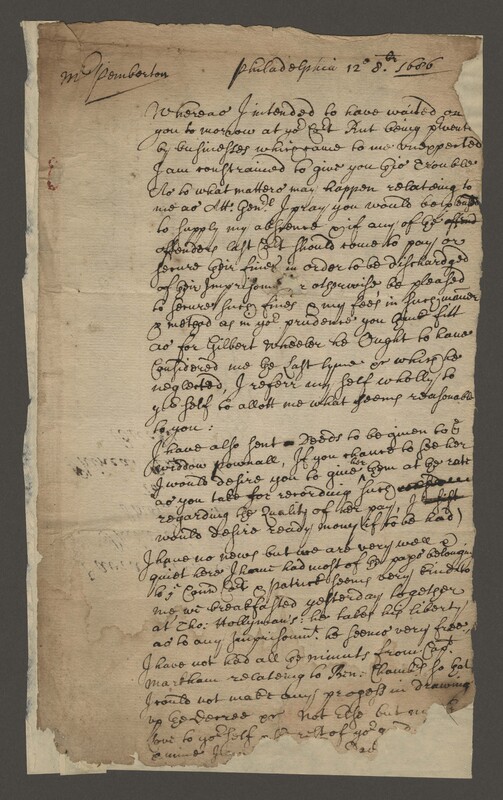 Mr Pemberton Philadelphia 12o 8.br 1686
Whereas I intended to have waited on
you to morrow at yor Cort But being prvented
by businesses which came to me unexpected
I am constrained to give you this trouble
As to what matters may happen relateing to
me as Att: Genll I pray you would be pleased
to supply my absence & if any of the offend
offenders last Cort should come to pay or
secure their fines in order to be discharged
of their Imprisonmt or otherwise be pleased
to secure such fines & my fees in such manner
& method as in yor prudence you think fitt
as for Gilbert Wheeler he Ought to have
Considered me the last tyme pr which he
neglected, I referr my self wholly to
yor self to allott me what seems reasonable
to you:
I have also sent Deeds to be given to ye
Widdow Pownall, If you chance to see her
I would desire you to give her them at the rate
as you take for recording such
regarding the Quality of her pay, I
would desire ready money (if to be had)
I have no news but we are very well &
quiet here I have had most of the papr belonging
to ye Councl & Patrick seems very kind to
me we breakfasted yesterday together
at Tho: Hollymans: he takes his liberty
as to any Imprisonmt. he seems very free,
I have not had all the minuts from Capt
Markham relateing to Ben: Chambrs so that
I could not make any progess in drawing
up the Decree pr Not Else but my
Love to yor self & the rest of yor good
& mine